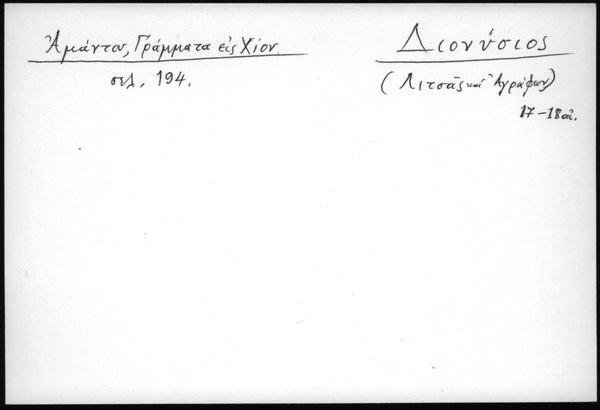 Ἀμάντου, Γράμματα εἰς Χίον.
σελ. 194.
Διονύσιος
(Λιτσᾶς καὶ Ἀγράφων)
17–18 αἰ.